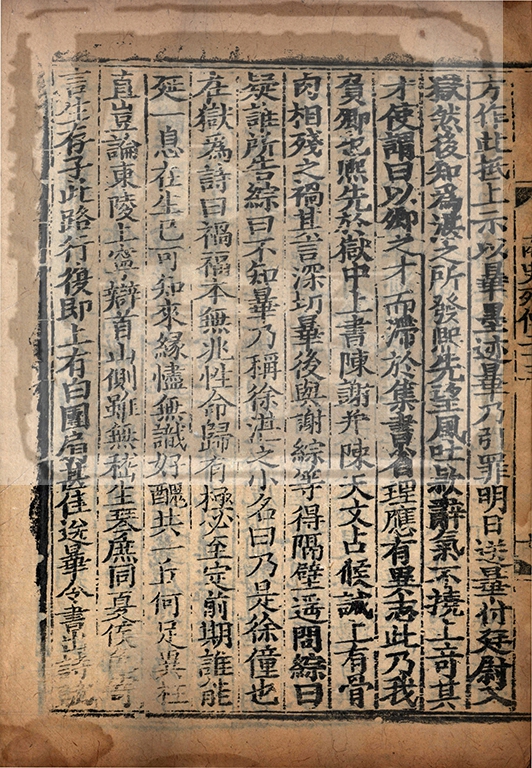 方作此抵上示以畢墨迹畢乃引罪明日送畢付廷尉入
獄然後知為湛之所發熙先望風吐款辭氣不撓上奇其
才使謂曰以卿之才而滯於集書省理應有異志此乃我
負卿也熙先於獄中上書陳謝并陳天文占候誡上有骨
肉相殘之禍其言深切畢後與謝綜等得隔壁遥問綜曰
疑誰所告綜曰不知畢乃稱徐湛之小名曰乃是徐僮也
在獄為詩曰禍福本無兆性命歸有極必至定前期誰能
延一息在生已可知來緣㦎無識好醜共一丘何足異枉
真豈論東陵上寧辯首山側雖無嵇生琴庶同夏侯色寄
言生存子此路行復即上有白團扇甚佳送畢令書出詩